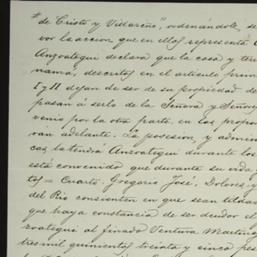 de Cristo y Villareño", ordenandole, se
vor la accion que en ellas representa
Anzoategui declara que la casa y terre
nama, descritos en el articulo prim
I y II dejan de ser de su propiedad de
pasan á serlo de la Señora y Señores
venio por la otra parte, en las propor
ran adelante. La posesion, y adminis
cas, la tendrá Anzoategui durante los
está convenido que durante su vida,
tos = Cuarto. Gregorio José, Dolores y
del Rio consienten en que sean
que haya constancia de ser deudor el
zoategui al finado Ventura Martinez
tres mil quinientos treinta y cinco pesos